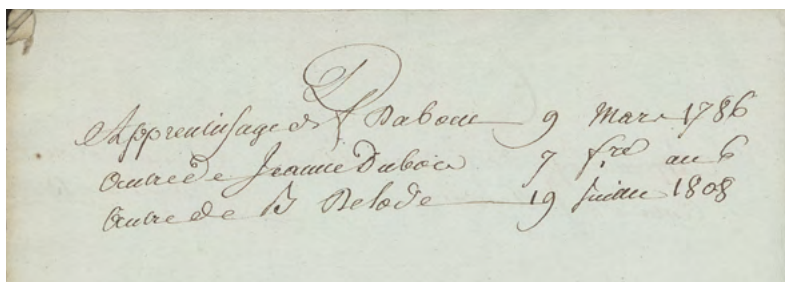 Apprentissage de f Daboue 9 Mars 1786
autre de Jeanne Duboce 7 fre an 6
autre de B Delode 19 1808